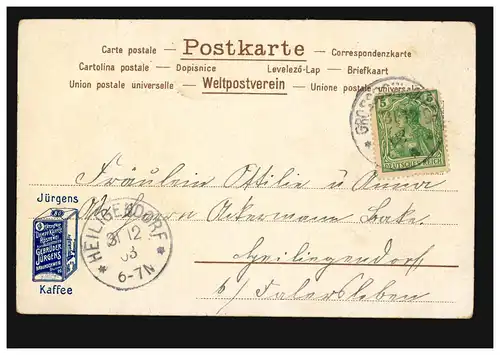 Carte postale — Postkarte — Correspondenzkarte
Cartolina postale — Dopisnice Levelező-Lap — Briefkaart
Union postale universelle — Weltpostverein — Unione postale universale
5 5
DEUTSCHES REICH
* GROSS
Fräulein Ottilie u Anna
Ackermann
Heiligendorf
b/ Fallersleben
Jürgens
GEBRÜDER
JÜRGENS
BRAUNSCHWEIG
Kaffee
* HEILIGENDORF *
31 12
03
6-7N